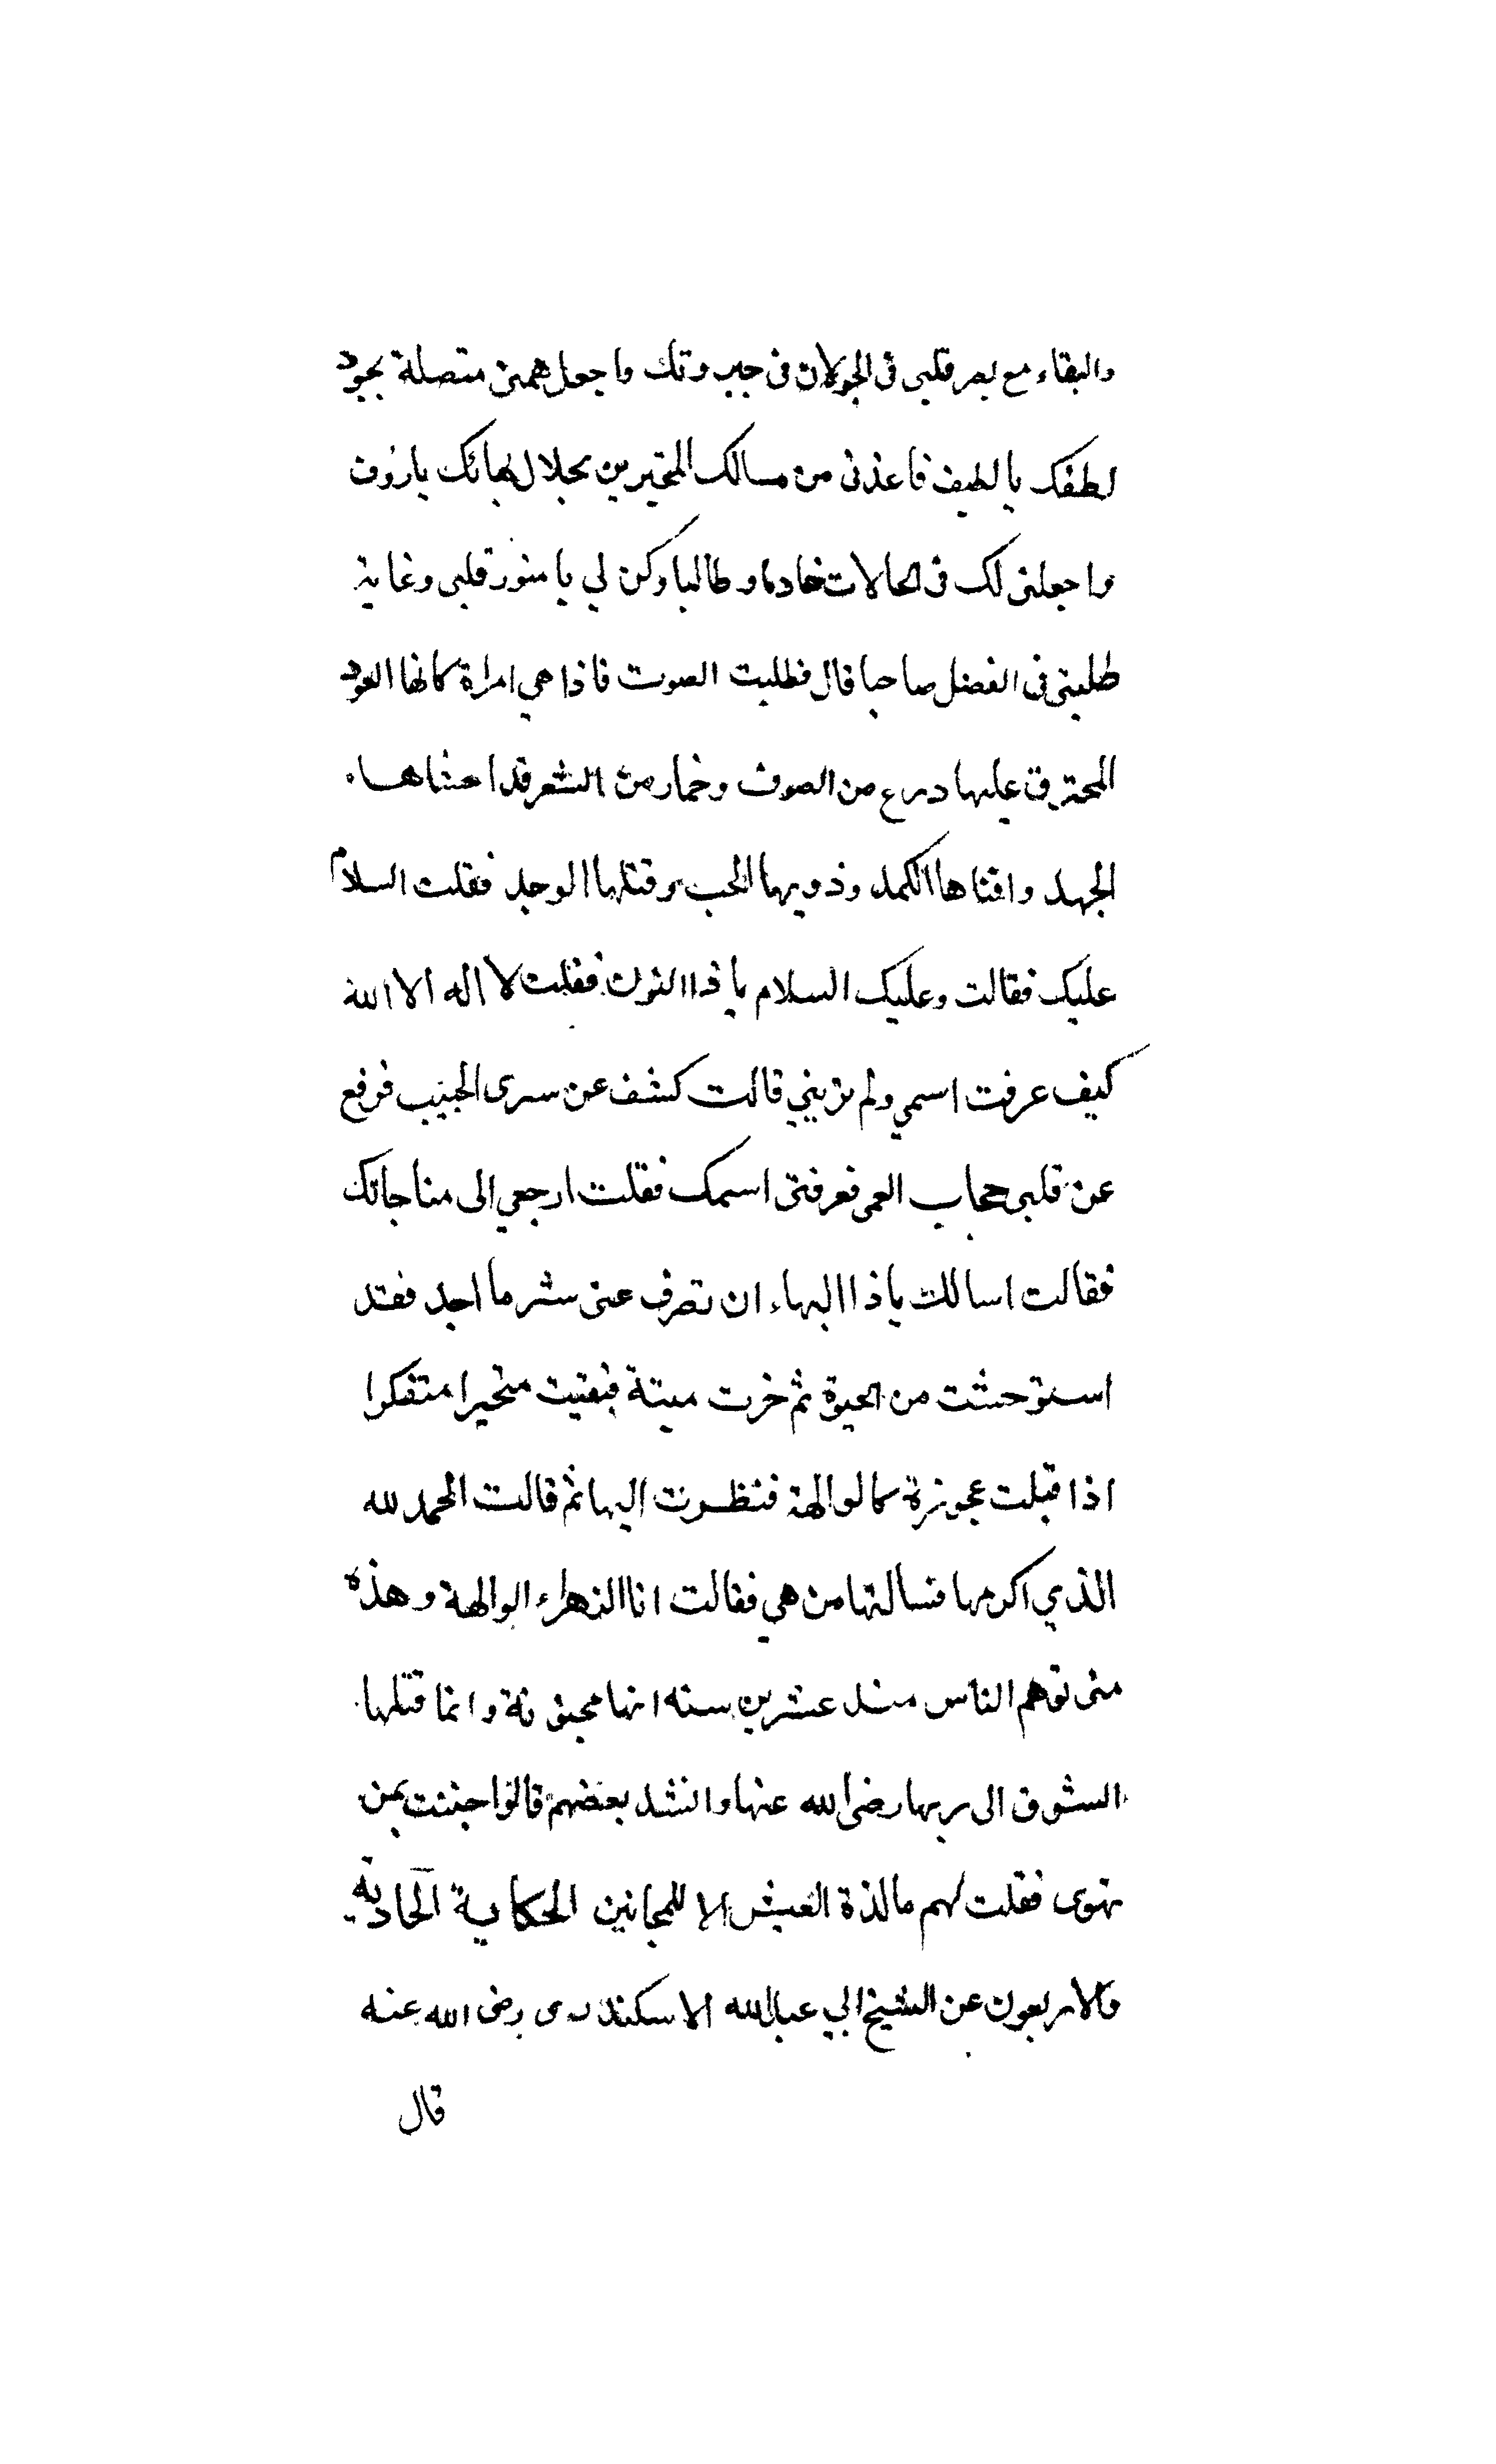 والبقاء مع بصر قلبي فى الجولان فى جبروتك واجعل همتى متصلة بجود
لطفك يا لطيف فاعذنى من مسالك المتحيرين بجلال بهائك يارؤف
واجعلنى لك فى الحالات خادما وطالبا وكن لي يا منور قلبى وغاية
طلبتى فى الفضل صاحبا قال فطلبت الصوت فاذا هي امراة كانها العود
المحترق عليها درع من الصوف وخمار من الشعر قد اضناها
الجهد وافناها الكمد وذوبها الحب وقتلها الوجد فقلت السلام
عليك فقالت وعليك السلام يا ذا النون فقلت لا اله الا الله
كيف عرفت اسمي ولم ترينى قالت كشف عن سرى الحبيب فرفع
عن قلبى حجاب العمى فعرفنى اسمك فقلت ارجعي الى مناجاتك
فقالت اسالك ياذا البهاء ان تصرف عنى شر ما اجد فقد
استوحشت من الحيوة ثم خرت ميتة فبقيت متحيرا متفكرا
اذا قبلت عجوزة كالوالهة فنظرت اليها ثم قالت الحمد لله
الذي اكرمها فسالتها من هي فقالت انا الزهراء الوالهة وهذه
منى توهم الناس منذ عشرين سنه انها مجنونة وانما قتلها
الشوق الى ربها رضى الله عنها وانشد بعضهم قالوا جننت بمن
تهوى فقلت لهم ما لذة العيش الا للمجانين الحكاية الحادية
والاربعون عن الشيخ ابي عبد الله الاسكندرى رضى الله عنه
قال